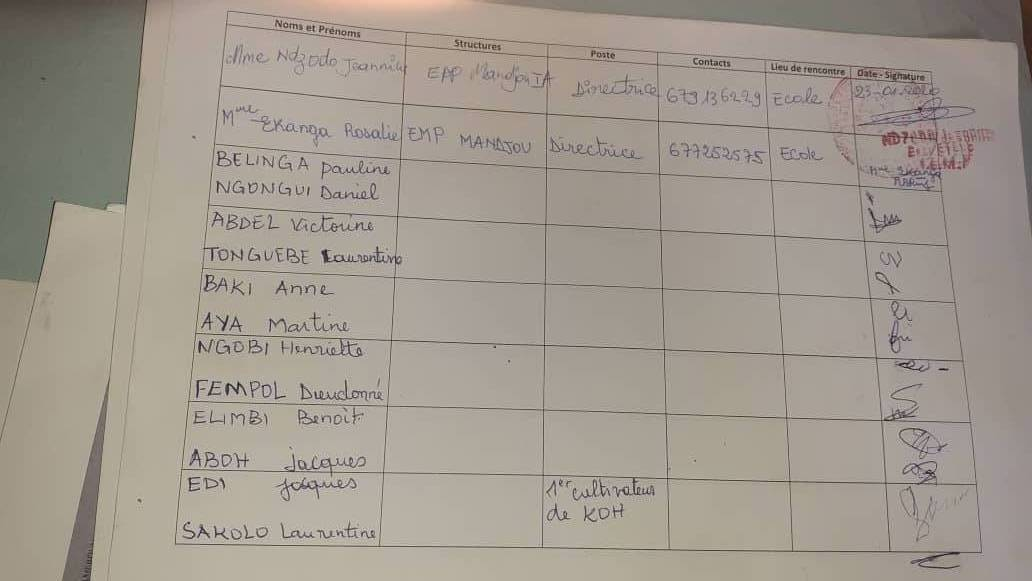 Noms et Prénoms Structures Poste Contacts Lieu de rencontre Date - Signature
Mme Ndzodo Jeannine EPP Mandjou IA Directrice 679136229 Ecole
Mme Ekanga Rosalie EMP MANDJOU Directrice 677252575 Ecole
Mme Ekanga
BELINGA Pauline
NGONGUI Daniel
ABDEL Victorine
TONGUEBE Laurentine
BAKI Anne
AYA Martine
NGOBI Henriette
FEMPOL Dieudonné
ELIMBI Benoît
ABOH Jacques
EDI Jacques 1er cultivateur
de KOH
SAKOLO Laurentine